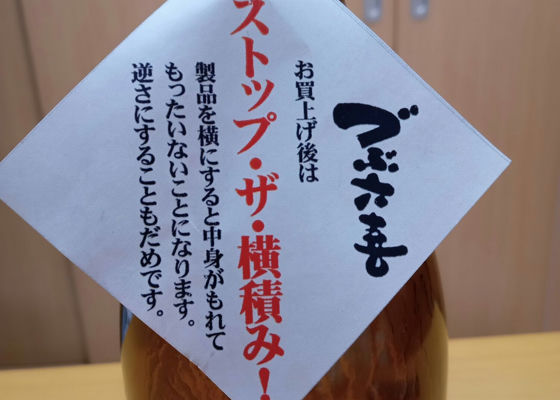 づぶ六喜
お買上げ後は
ストップ・ザ・横積み！
製品を横にすると中身がもれて
もったいないことになります。
逆さにすることもだめです。